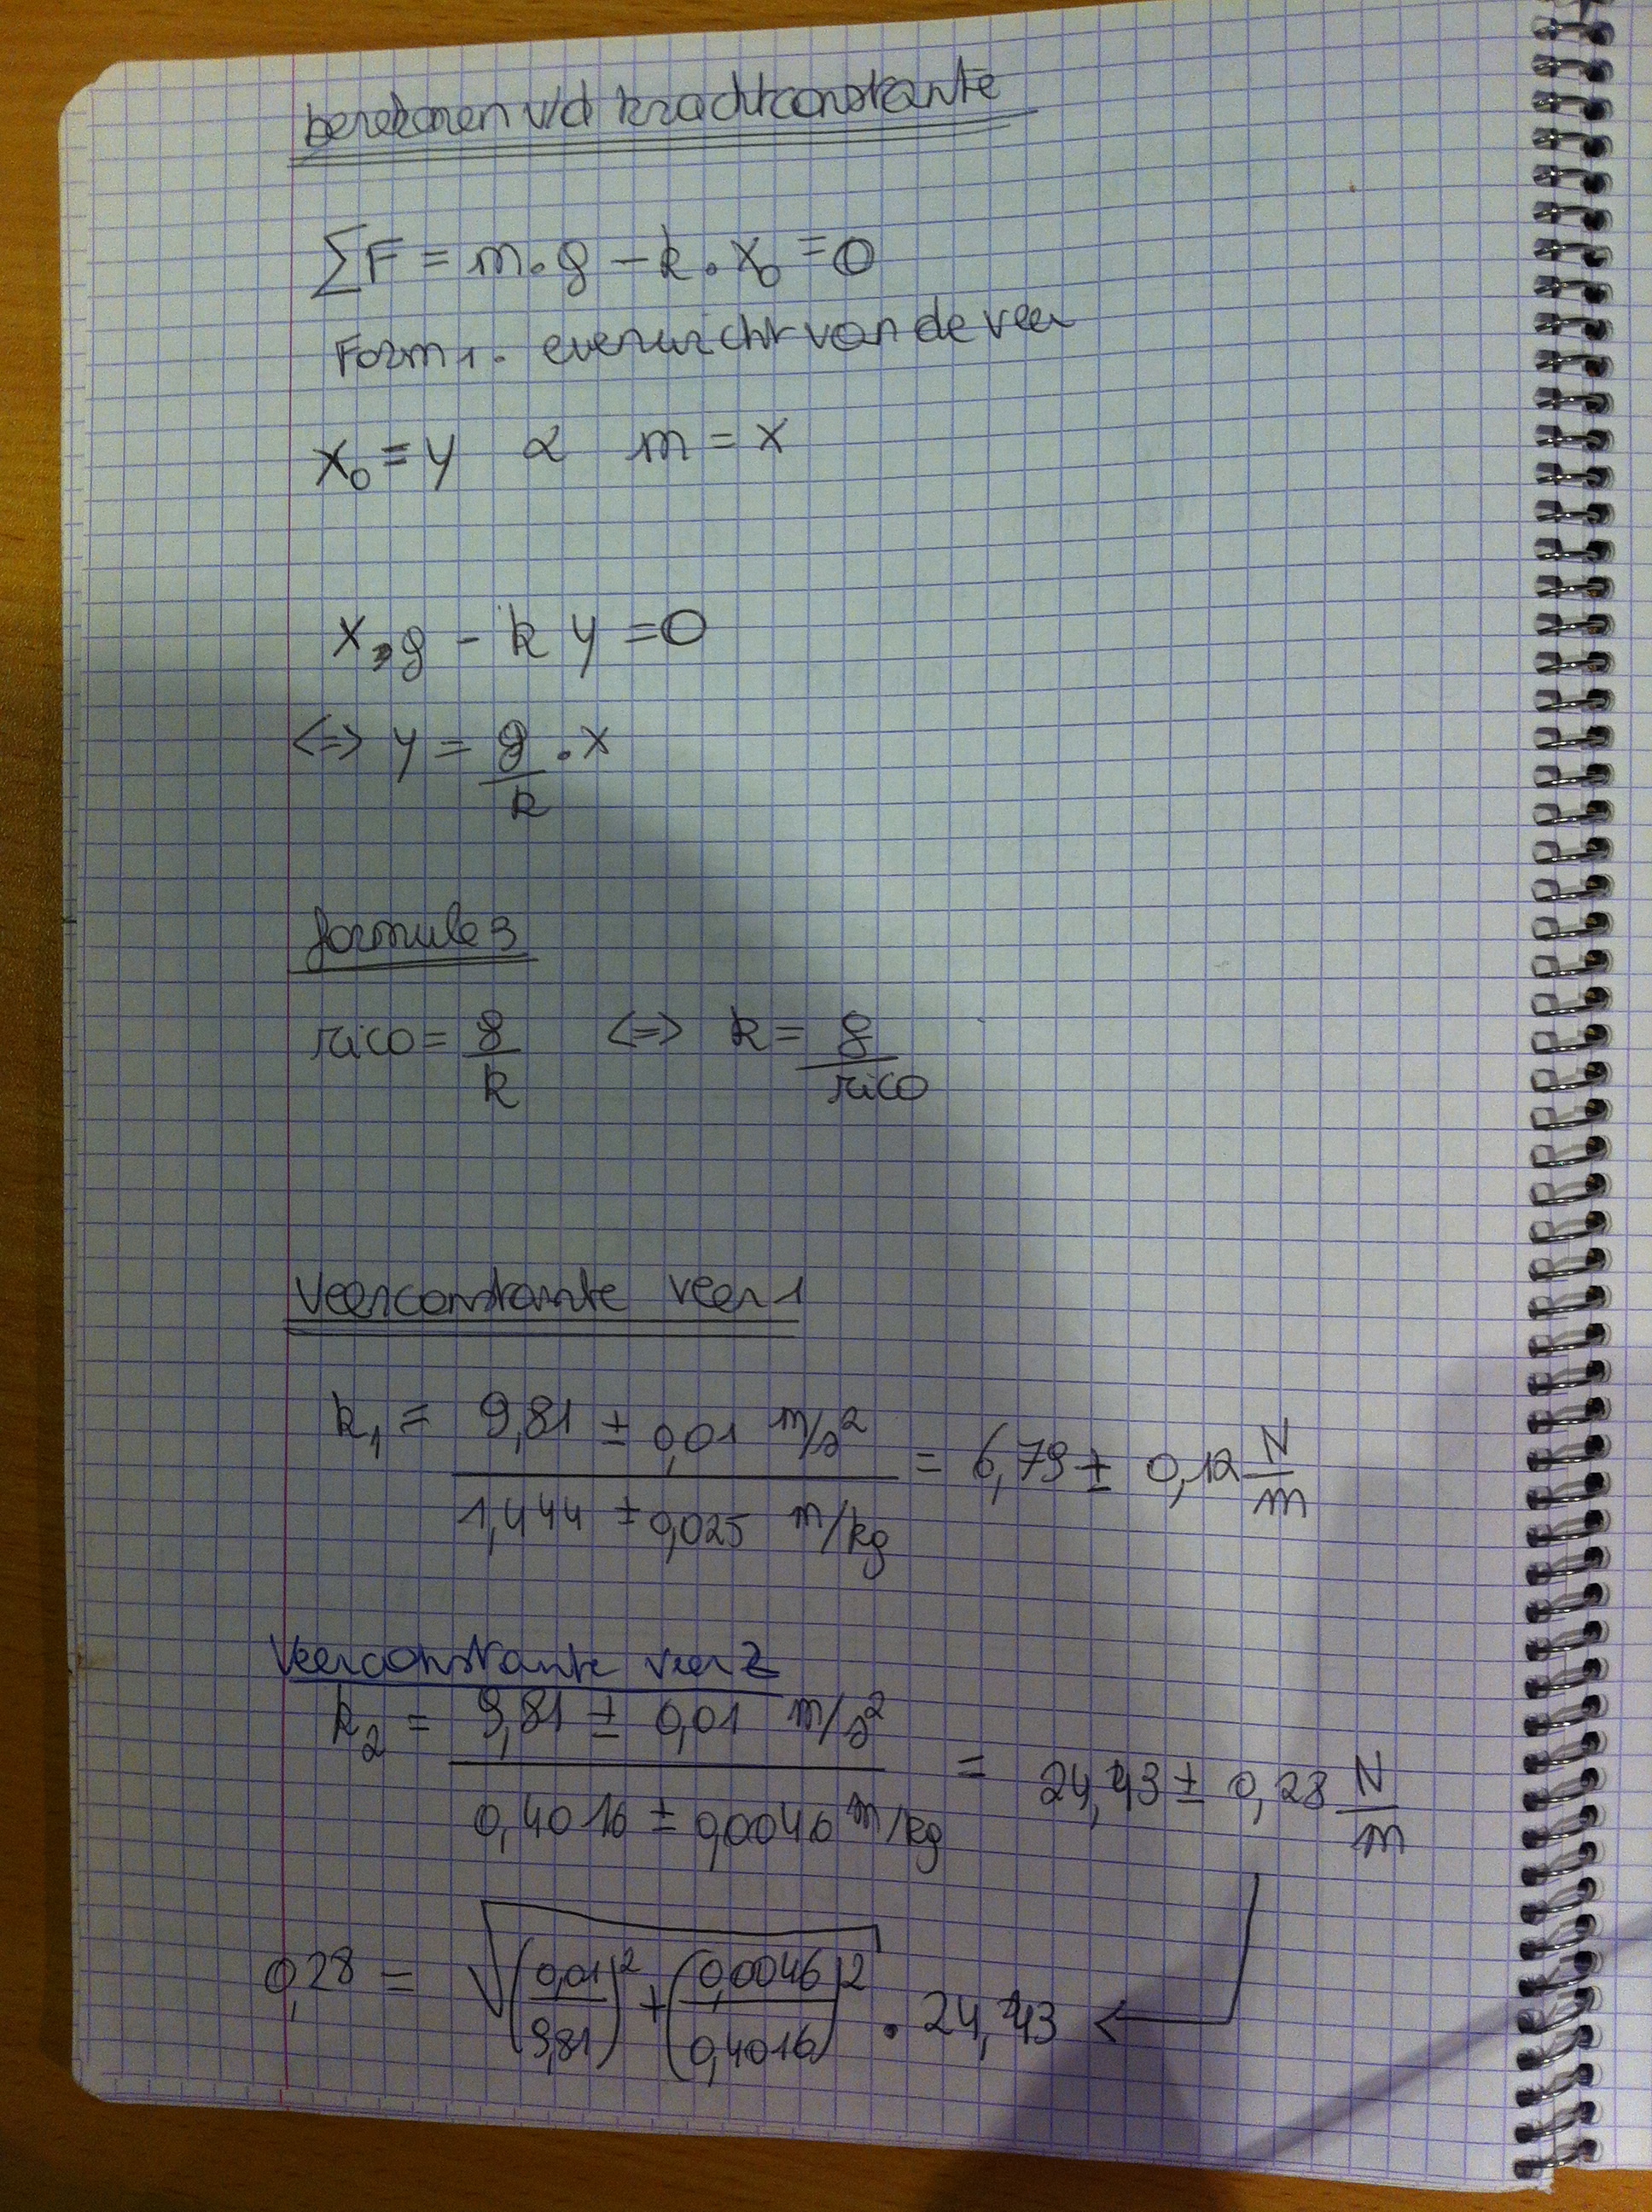 berekenen v/d krachtconstante
∑F = m . g - k . x₀ = 0
Form 1. evenwicht van de veer
x₀ = y & m = x
x . g - k y = 0
<=> y = g/k . x
formule 3
rico = g/k <=> k = g/rico
Veerconstante veer 1
k₁ = (9,81 ± 0,01 m/s²)/(1,444 ± 0,025 m/kg) = 6,79 ± 0,12 N/m
Veerconstante veer 2
k₂ = (9,81 ± 0,01 m/s²)/(0,4016 ± 0,0046 m/kg) = 24,43 ± 0,28 N/m
0,28 = √((0,01/9,81)² + (0,0046/0,4016)²) . 24,43 <